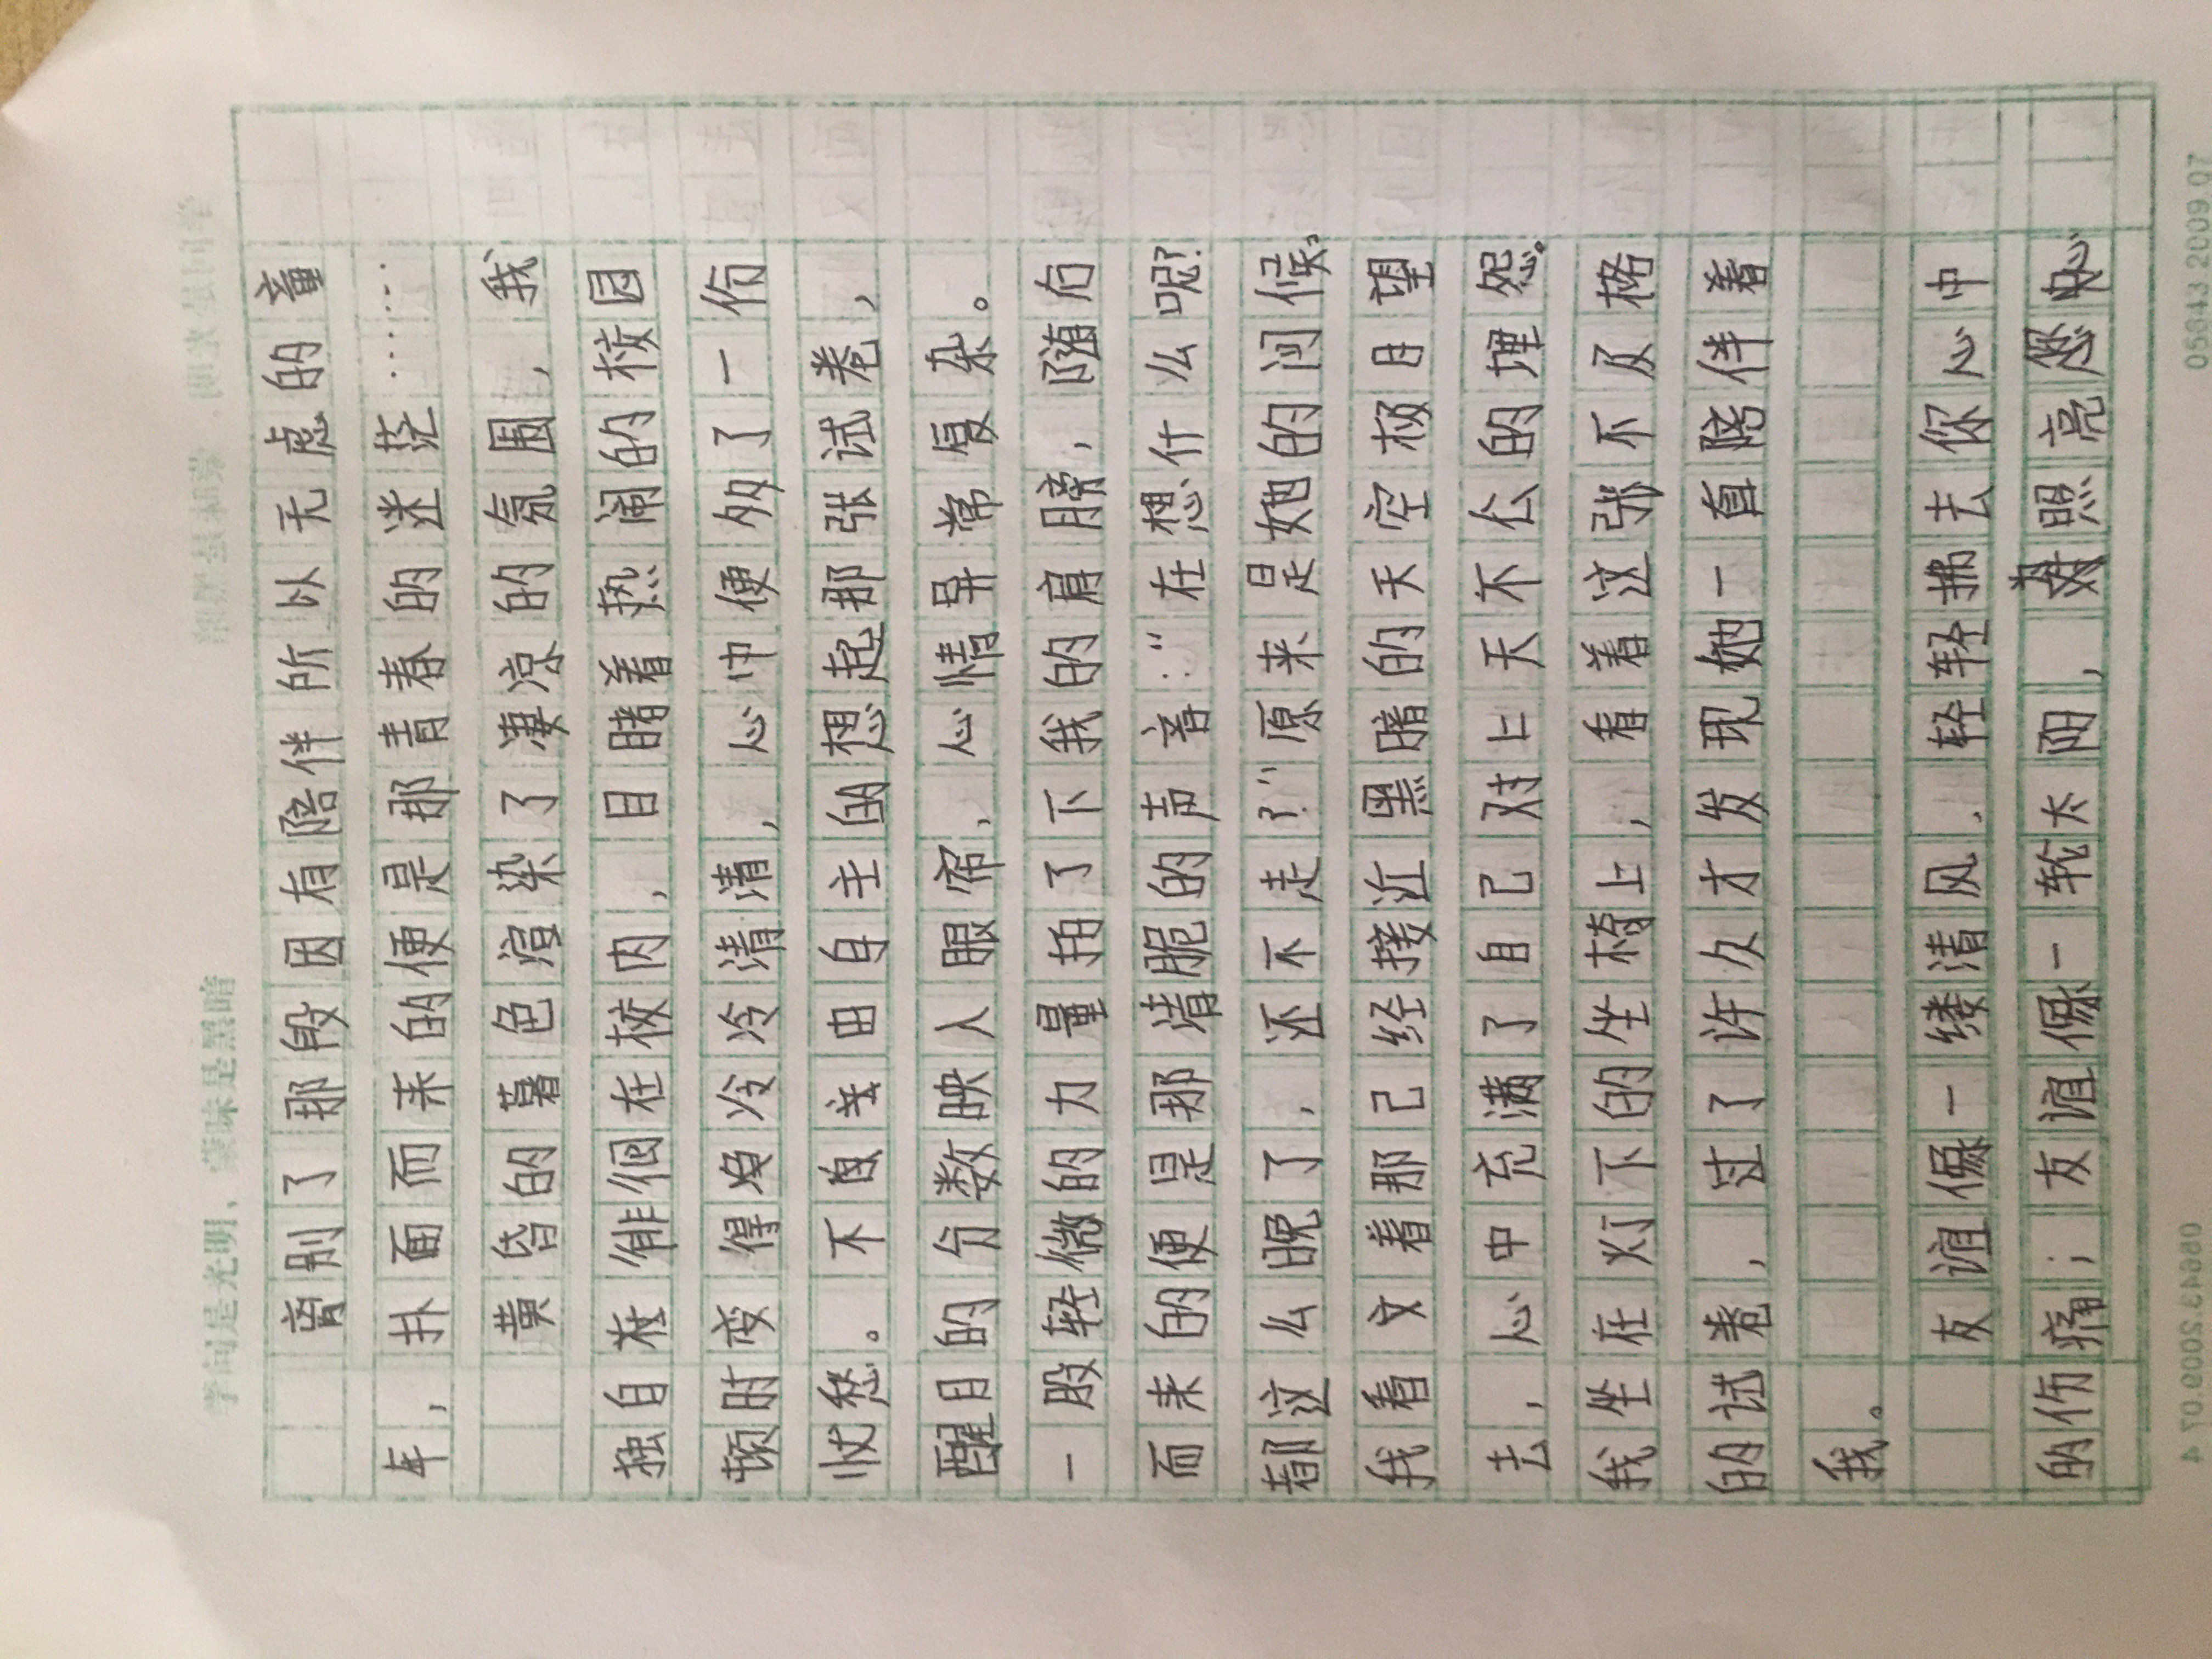 学问是光明，蒙昧是黑暗
离别了那段因有陪伴所以无虑的童
年，扑面而来的便是那青春的迷茫……
黄昏的暮色渲染了凄凉的氛围，我
独自在徘徊在校内，目睹着热闹的校园
顿时变得冷冷清清，心中便多了一份
忧愁。不由自主的想起那张试卷，
醒目的分数映入眼帘，心情异常复杂。
一股轻微的力量拍了下我的肩膀，随后
而来的便是那清脆的声音：“在想什么呢？
都这么晚了，还不走？”原来是她的问候，
我看文着那已经接近黑暗的天空极目望
去，心中充满了自己对上天不公的埋怨。
我坐在灯下的坐椅上，看着这张不及格
的试卷，过了许久才发现她一直陪伴着
我。
友谊像一缕清风，轻轻拂去你心中
的伤痛；友谊像一轮太阳，照亮
05643.2009.07 4